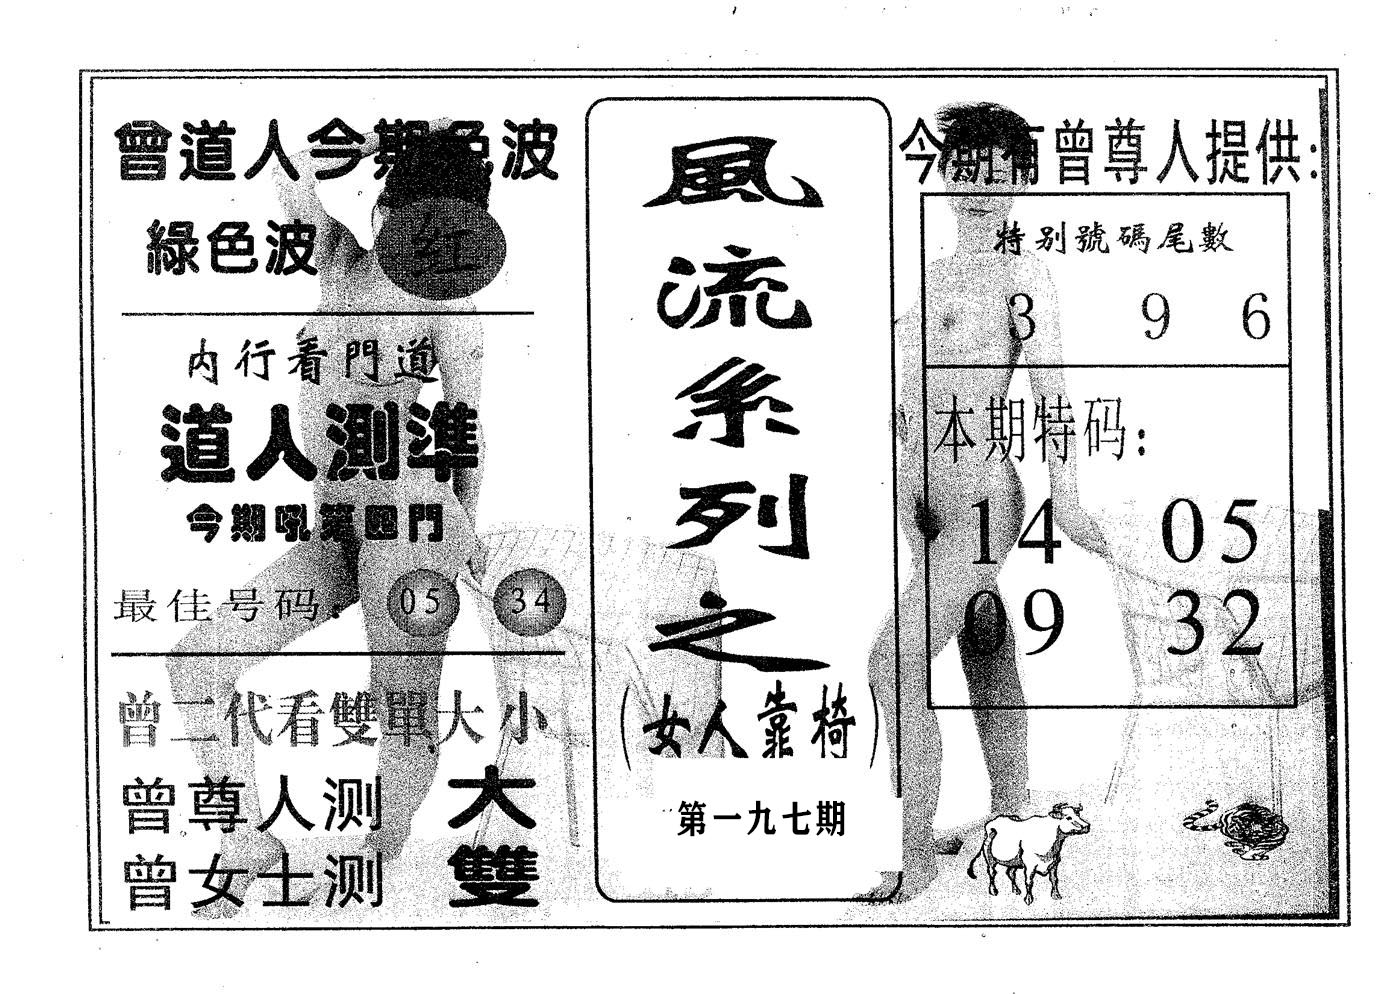 曾道人今期色波
綠色波 紅
内行看門道
道人測準
今期吼第四門
最佳号码: 05 34
曾二代看雙單大小
曾尊人测 大
曾女士测 雙
風流系列之
(女人靠椅)
第一九七期
今期有曾尊人提供:
特别號碼尾數
3 9 6
本期特码:
14 05
09 32